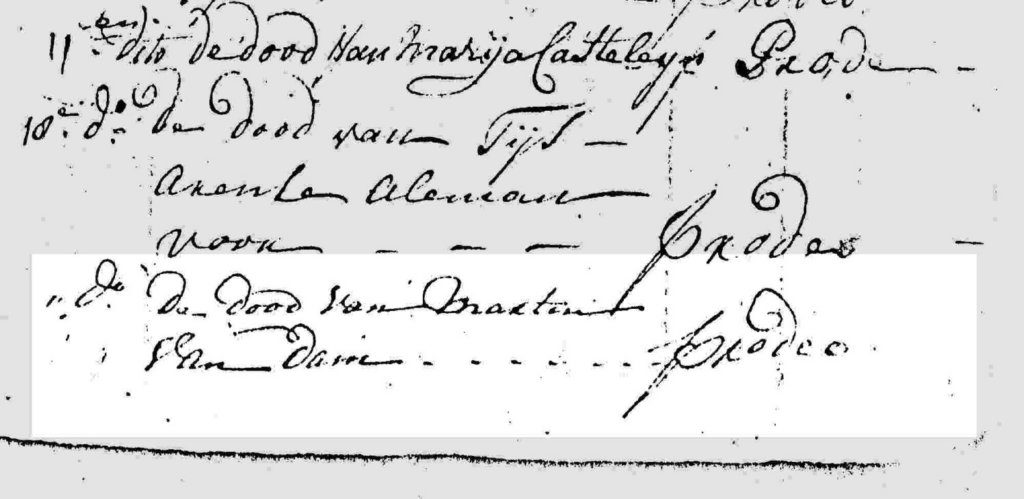 11en dito de dood van Marija Casteleyn Prode -
18e do de dood van Tijs -
Arense Aleman -
voor - - - Prodeo -
" do de dood van Martin
van Dam . . . . . . Prodeo